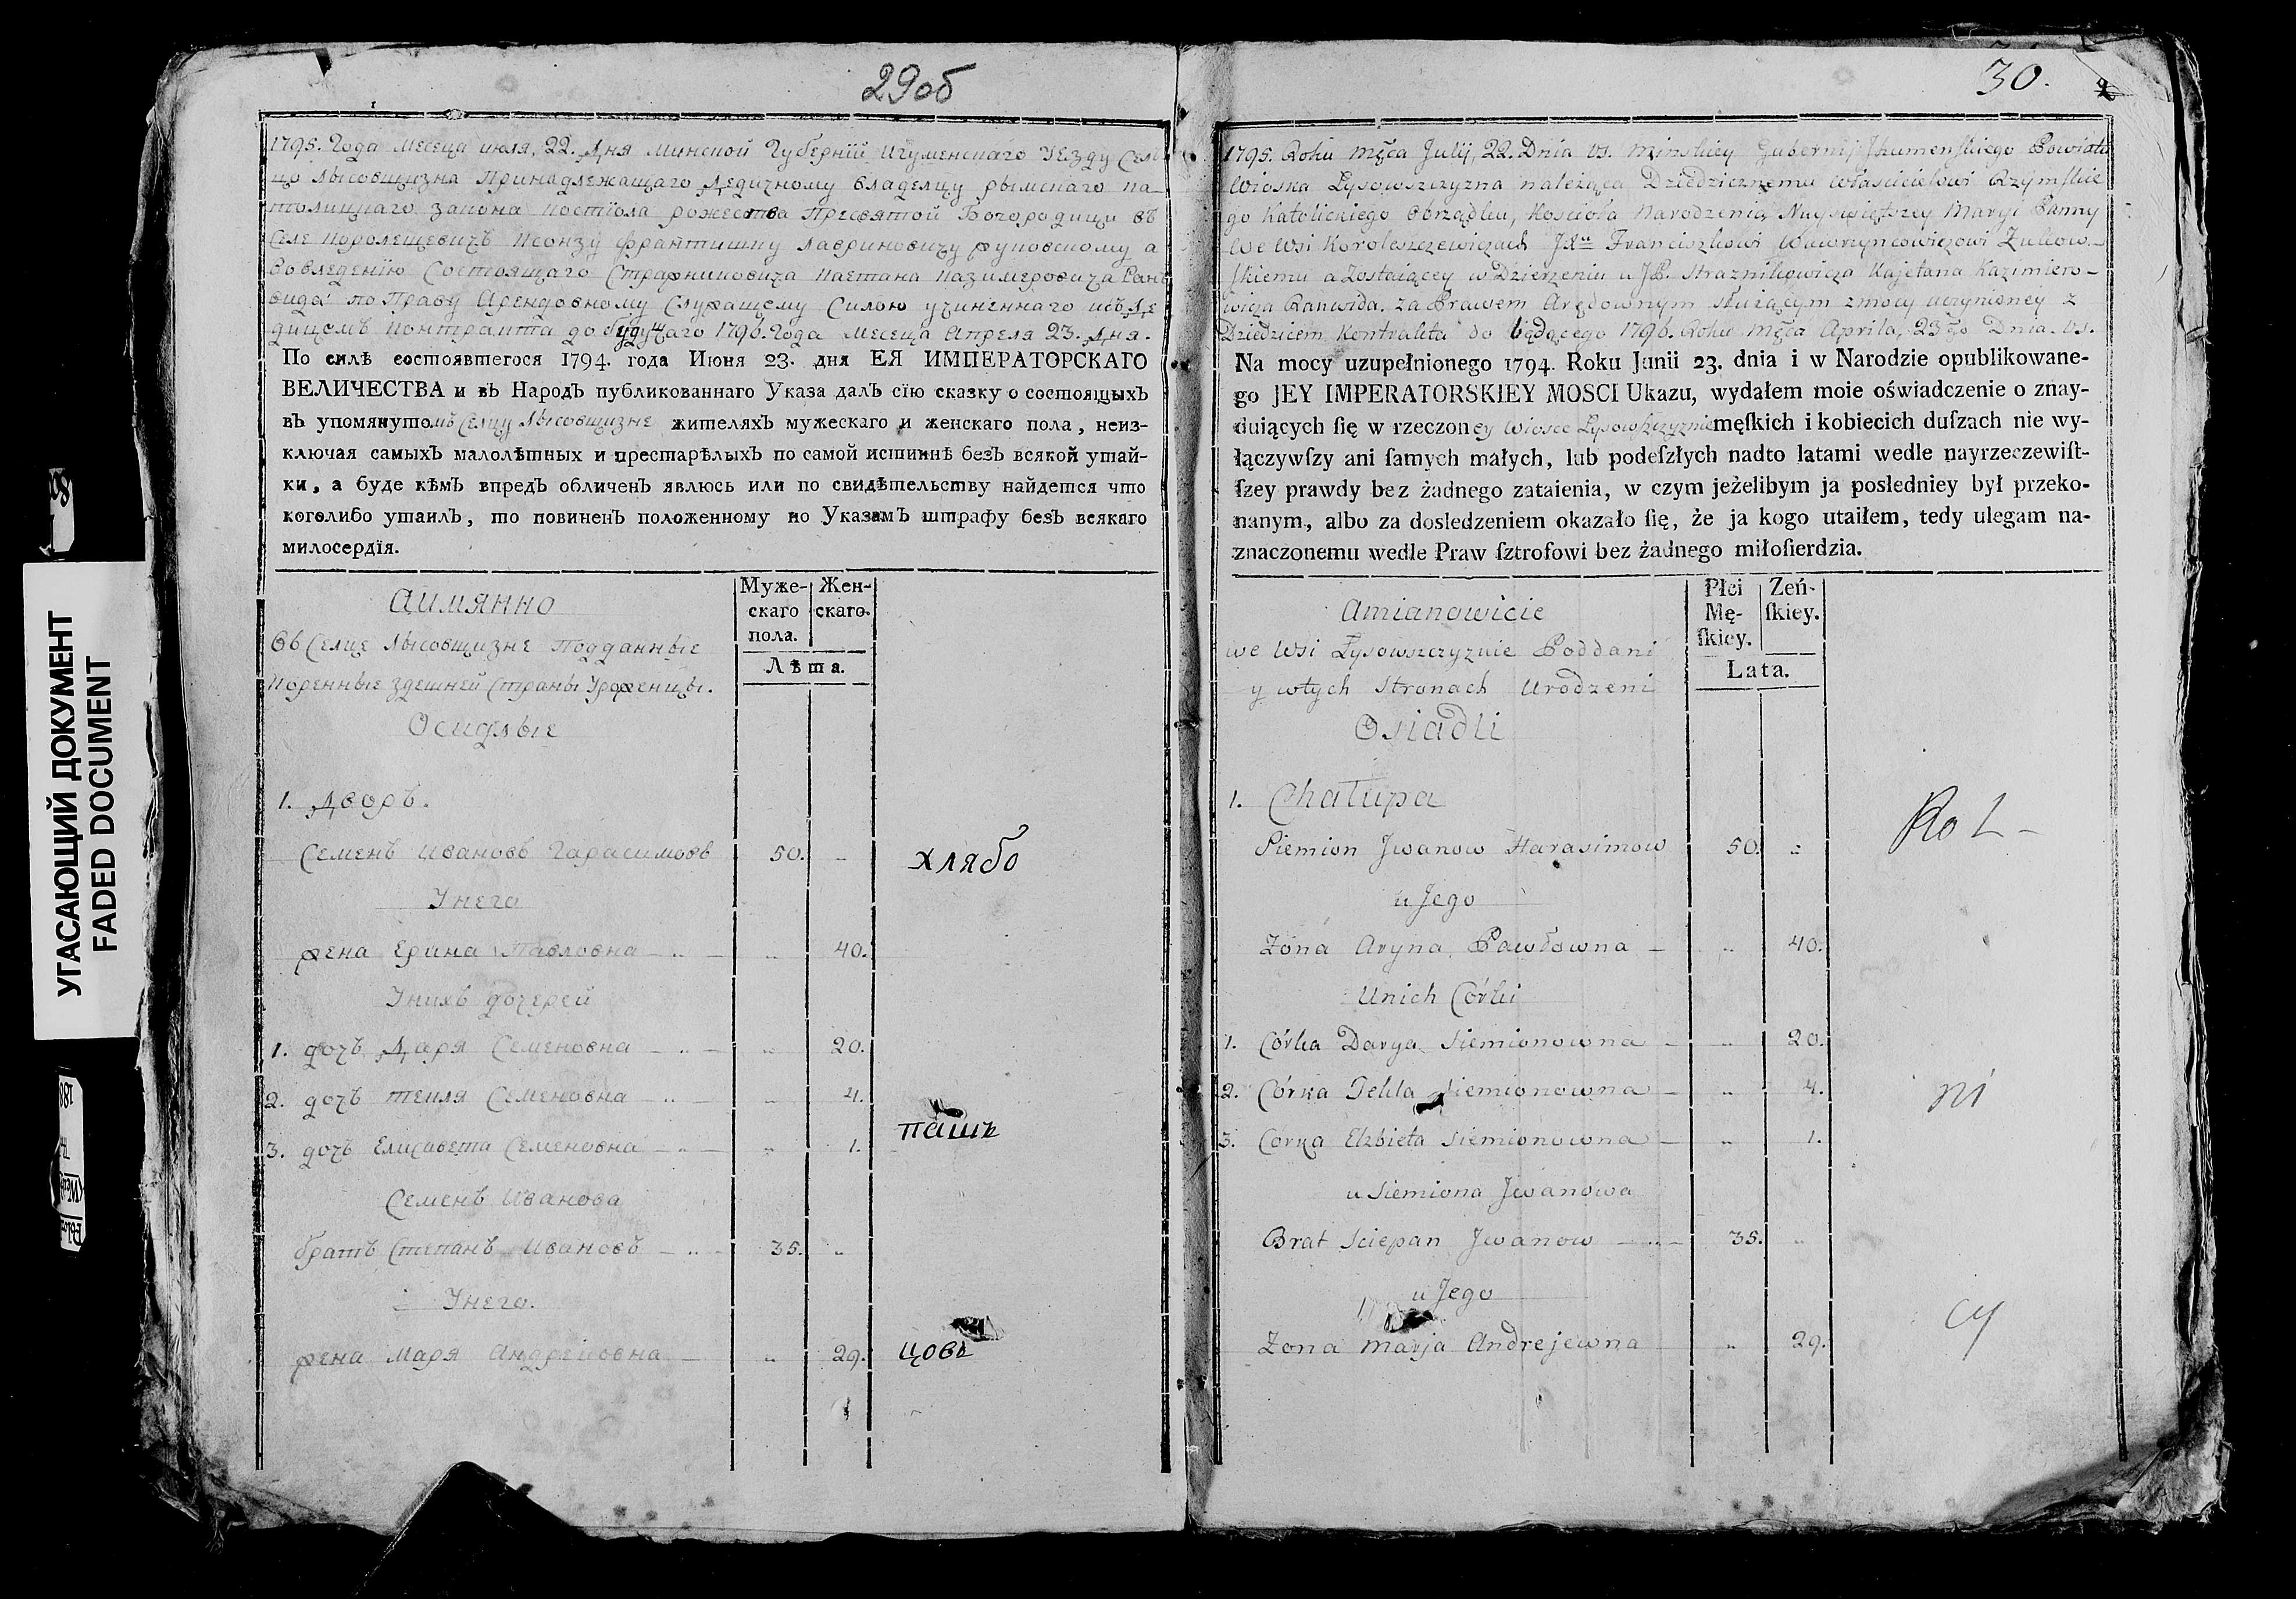 29об
1795. Года месеца июля, 22. дня минской Губернїй, Игуменскаго Уезду Сел
цо Лысовщизна Принадлежащаго Дедичному владелцу рымскаго ка-
толицкаго закона костїола рожества Пресвятой Богородици въ
Селе Королещевичъ Ксонзу францишку Лавриновичу а
во владенїю Состоящаго Стражниковича Каетана Казимеровича Ран
вида по Праву Арендовному Служащему Силою учиненнаго исъ Де
дицомъ контракта до будучаго 1796. Года месеца Апреля 23. дня.
По силѣ состоявшегося 1794. года Июня 23. дня ЕЯ ИМПЕРАТОРСКАГО
ВЕЛИЧЕСТВА и въ Народъ публикованнаго Указа далъ сїю сказку о состоящыхъ
въ упомянутомъ Селцу Лысовщизне жителяхъ мужескаго и женскаго пола, неиз-
ключая самыхъ малолѣтныхъ и престарѣлыхъ по самой истиннѣ безъ всякой утай-
ки, а буде кѣмъ впредъ обличенъ явлюсь или по свидѣтельству найдется что
коголибо утаилъ, то повиненъ положенному по Указамъ штрафу безъ всякаго
милосердїя.
Аимянно
Муже-
скаго
пола.
Жен-
скаго.
Лѣта.
Въ Селце Лысовщизне Подданные
Коренные здешней Страны Урженцы.
Осидлые
1. Дворъ.
Семенъ Ивановъ Гарасимовъ 50. „ хлябо
Унего
жена Ерина Павловна „ 40.
Унихъ дочерей
1. дочъ Даря Семеновна „ 20.
2. дочъ Текля Семеновна „ 4.
пашъ
3. дочъ Елисавета Семеновна „ 1.
Семенъ Иванова
братъ Степанъ Ивановъ 35. „
Унего.
жена Маря Андреиовна „ 29. цовъ
30.
1795. Roku Męca Julij, 22. Dnia vs. Minskiey Gubernij Jhumenſkiego Powiatu
Wioska Łysowszczyzna należąca Dziedzicznemu Właścicielowi Rzymſkie
go Katolickiego Obrządku, Kościoła Narodzenia Nayświętszey Maryi Panny
We Wsi Koroleszczewiczach Franciszkowi Wawrzyncowiczowi Żukow-
ſkiemu a Zostaiącey w Dzierżeniu u JP. Strażnikowicza Kajetana Kazimiero-
wicza Ranwida. za Prawem Arędownym służącym z mocy uczynioney z
Dziedzicem Kontraktu do będącego 1796. Roku Męca Aprila, 23go Dnia. vs.
Na mocy uzupełnionego 1794. Roku Junii 23. dnia i w Narodzie opublikowane-
go JEY IMPERATORSKIEY MOSCI Ukazu, wydałem moie oświadczenie o znay-
duiących ſię w rzeczoney Wiosce Łysowszczyznie męſkich i kobiecich duſzach nie wy-
łączywſzy ani ſamych małych, lub podeſzłych nadto latami wedle nayrzeczewiſt-
ſzey prawdy bez żadnego zataienia, w czym jeżelibym ja posledniey był przeko-
nanym, albo za dosledzeniem okazało ſię, że ja kogo utaiłem, tedy ulegam na-
znaczonemu wedle Praw ſztrofowi bez żadnego miłoſierdzia.
Amianowicie
Płci
Mę-
ſkiey.
Zeń-
ſkiey.
Lata.
we Wsi Łysowszczyznie Poddani
y wtych Stronach Urodzeni
Osiadli
1. Chałupa
Rol-
Siemion Jwanow Harasimow 50. „
u Jego
Żona Aryna Pawłowna „ 40.
Unich Córki
1. Córka Darya Siemionowna „ 20.
2. Córka Tekla Siemionowna „ 4.
ni
3. Córka Elzbieta Siemionowna „ 1.
u Siemiona Jwanowa
Brat Sciepan Jwanow 35. „
u Jego
cy
Żona Marja Andrejewna „ 29.
УГАСАЮЩИЙ ДОКУМЕНТ
FADED DOCUMENT